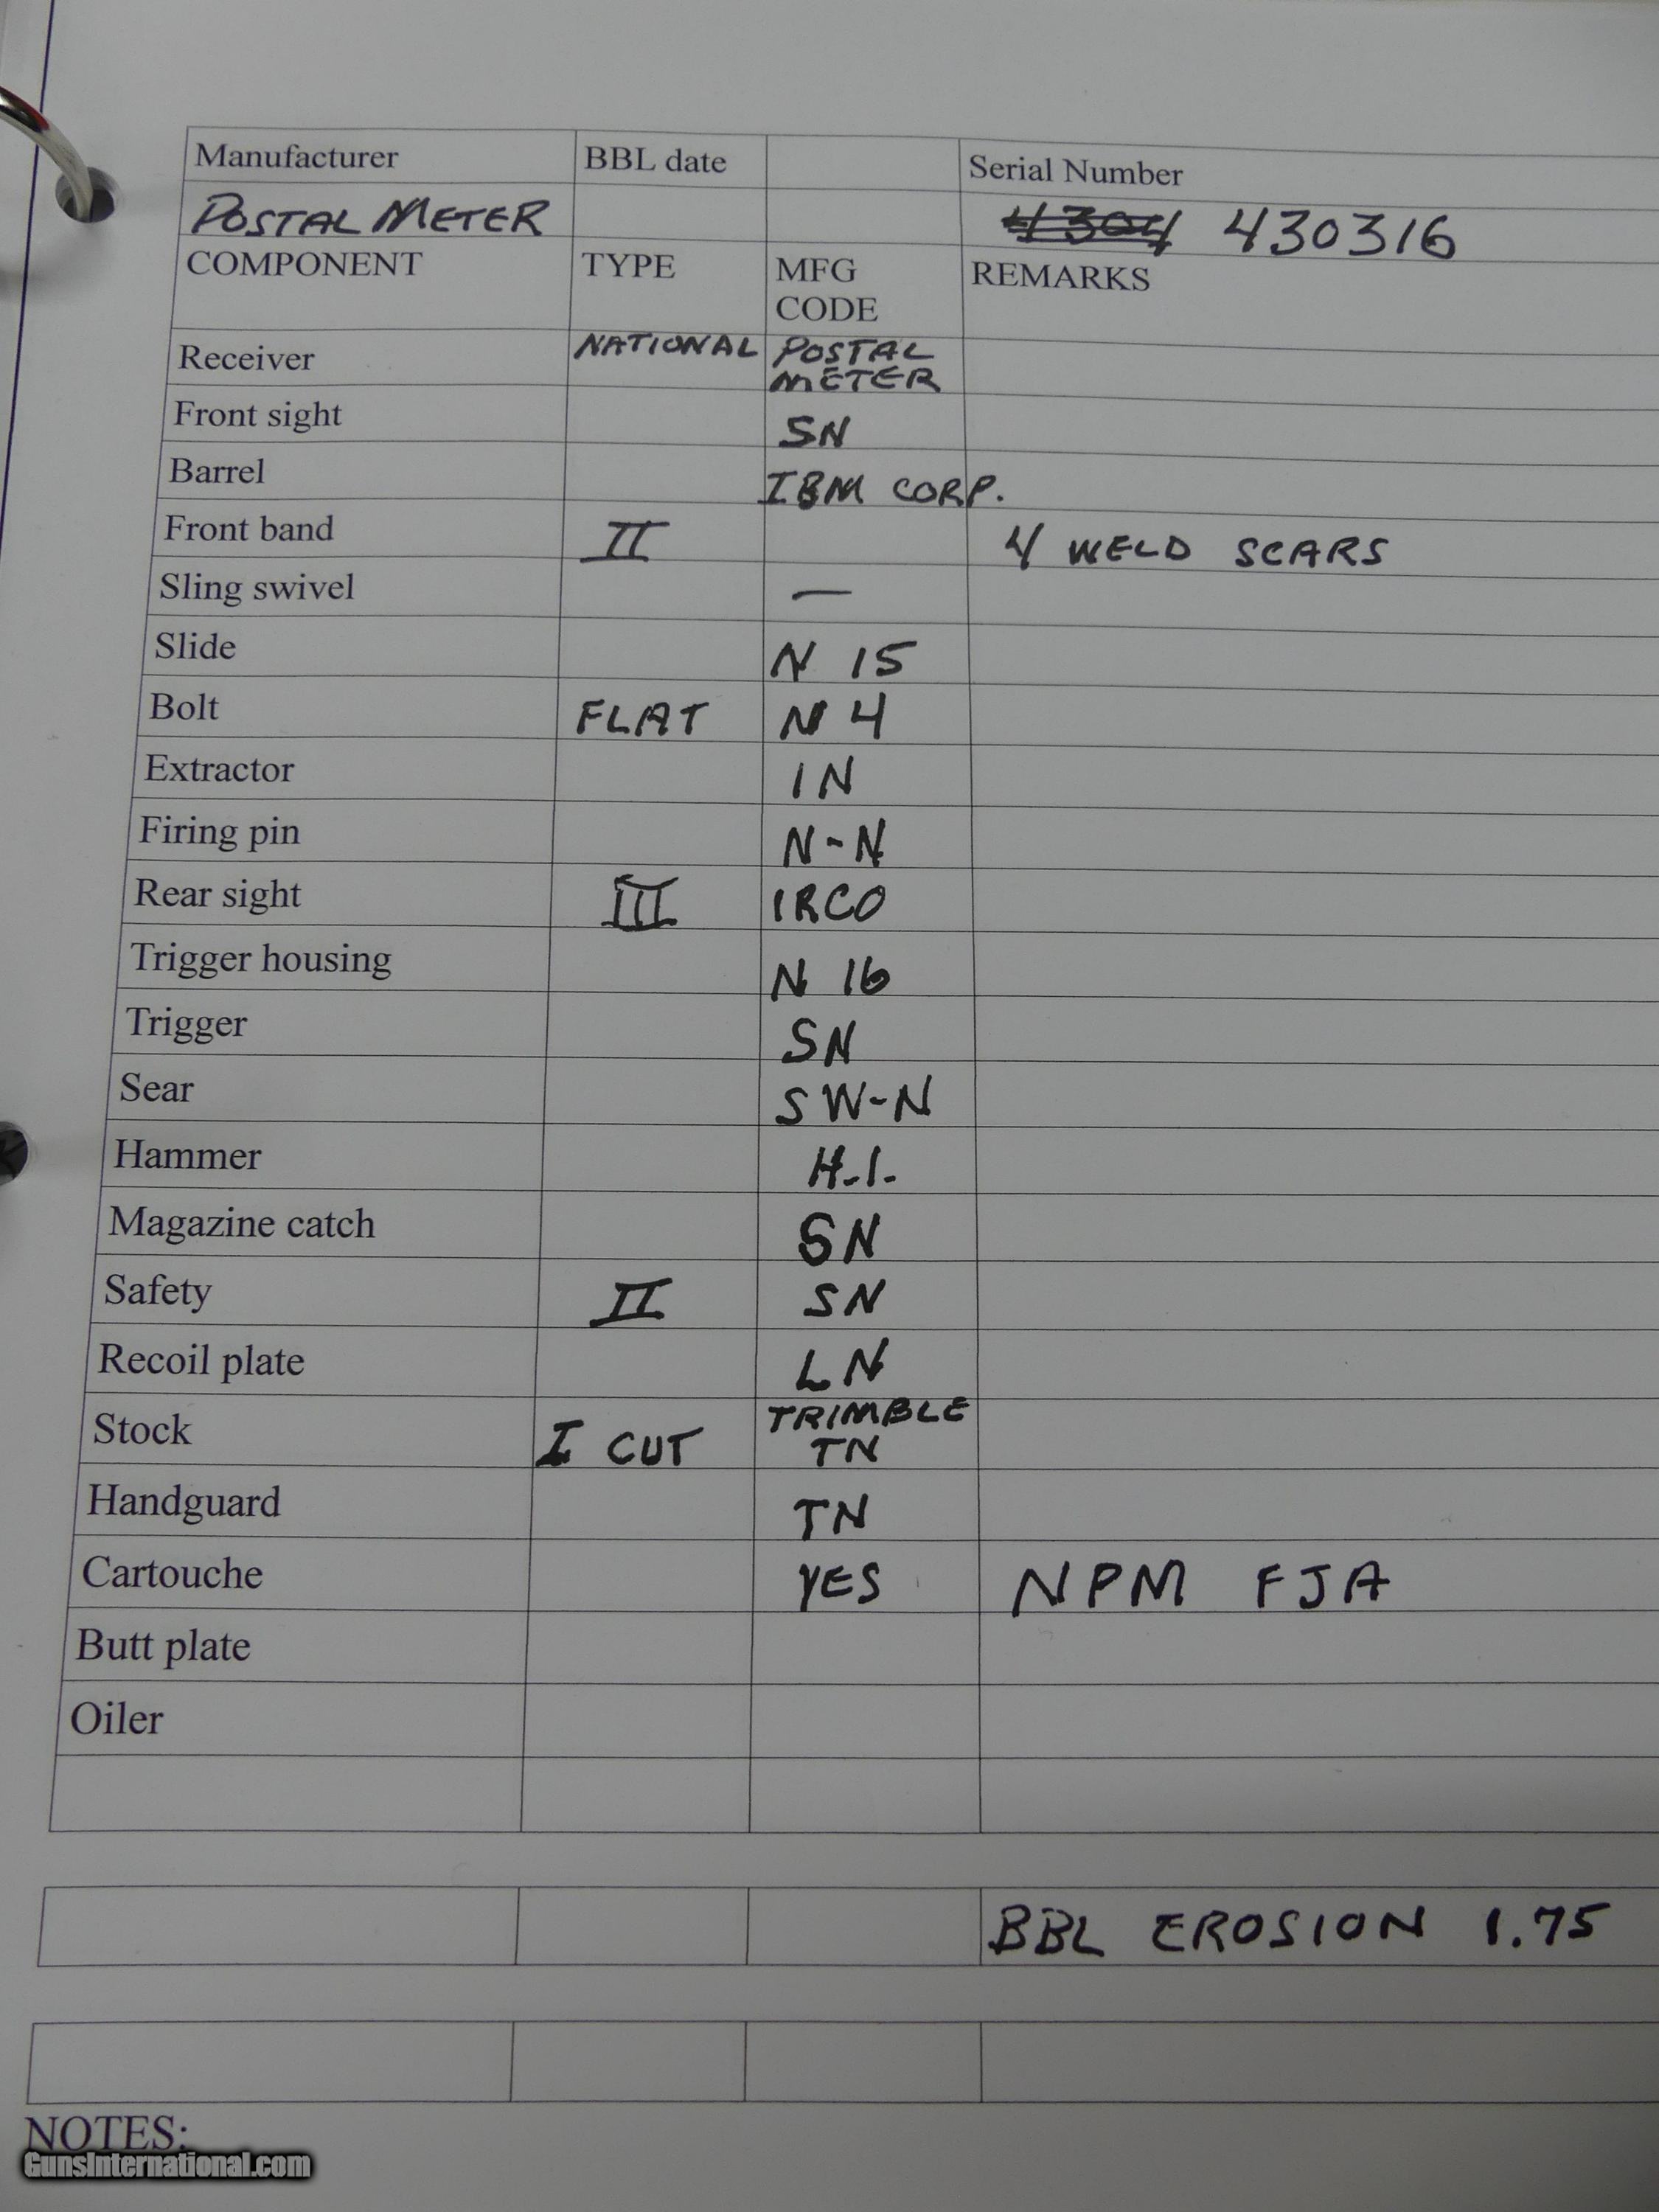 Manufacturer BBL date Serial Number
POSTAL METER 4304 430316
COMPONENT TYPE MFG CODE REMARKS
Receiver NATIONAL POSTAL METER
Front sight SN
Barrel IBM CORP.
Front band II 4 WELD SCARS
Sling swivel —
Slide N 15
Bolt FLAT N 4
Extractor IN
Firing pin N-N
Rear sight III IRCO
Trigger housing N 16
Trigger SN
Sear SW-N
Hammer H.I.
Magazine catch SN
Safety II SN
Recoil plate LN
Stock I CUT TRIMBLE TN
Handguard TN
Cartouche YES NPM FJA
Butt plate
Oiler
BBL EROSION 1.75
NOTES:
GunsInternational.com